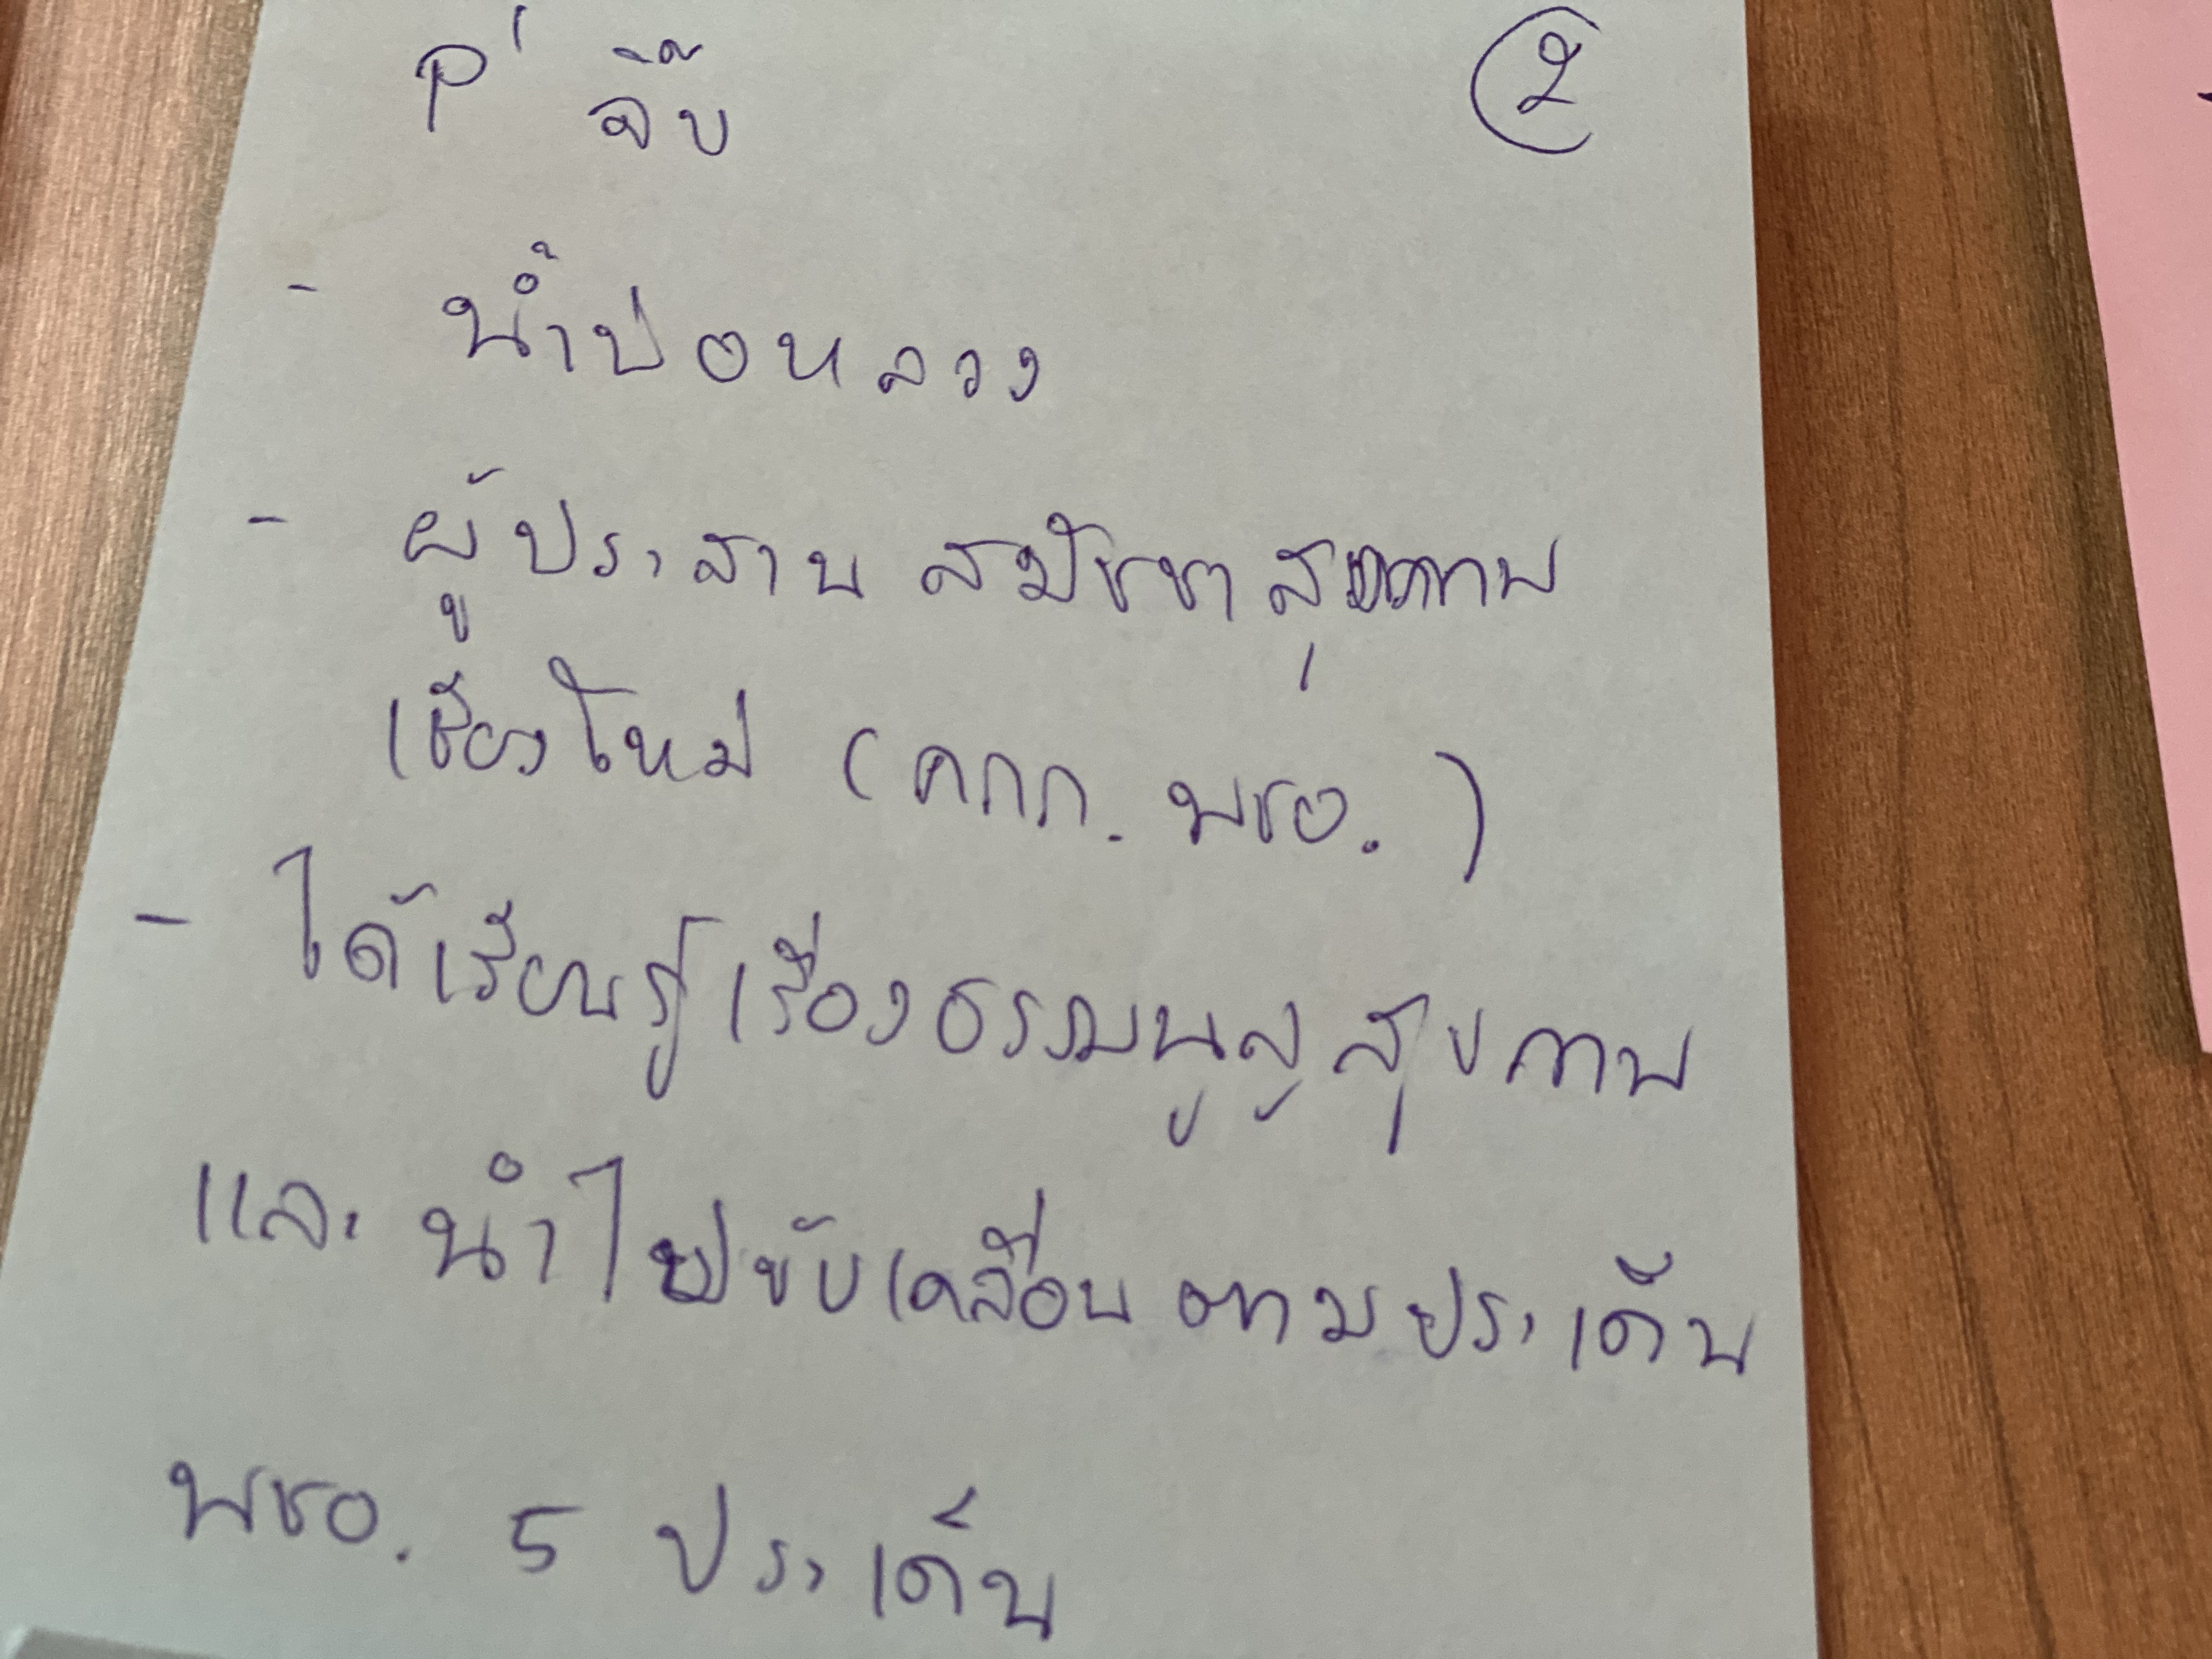 P' จิ๊บ ②
- น้ำบ่อหลวง
- ผู้ประสาน สมัชชาสุขภาพ
เชียงใหม่ (คกก. พชอ.)
- ได้เรียนรู้เรื่องธรรมนูญสุขภาพ
และ นำไปขับเคลื่อน ตามประเด็น
พชอ. 5 ประเด็น